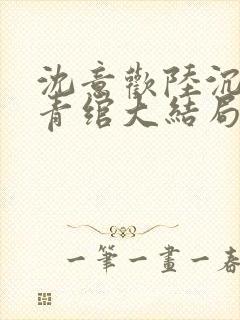 沈意歡陸沉
青綰大結局
一筆一畫一春